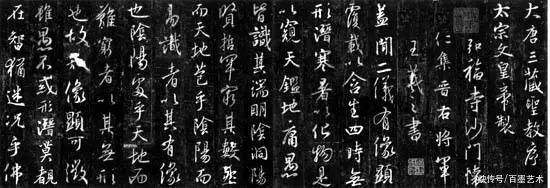 大唐三藏聖教序
太宗文皇帝製
弘福寺沙門懷
仁集晉右將軍
王羲之書
蓋聞二儀有像顯
覆載以含生四時無
形潛寒暑以化物是
以窺天鑑地庸愚
皆識其端明陰洞陽
賢哲罕窮其數然
而天地苞乎陰陽而
易識者以其有像
也陰陽處乎天地而
難窮者以其無形
也故知像顯可徵
雖愚不惑形潛莫覩
在智猶迷況乎佛
快传号/百墨艺术